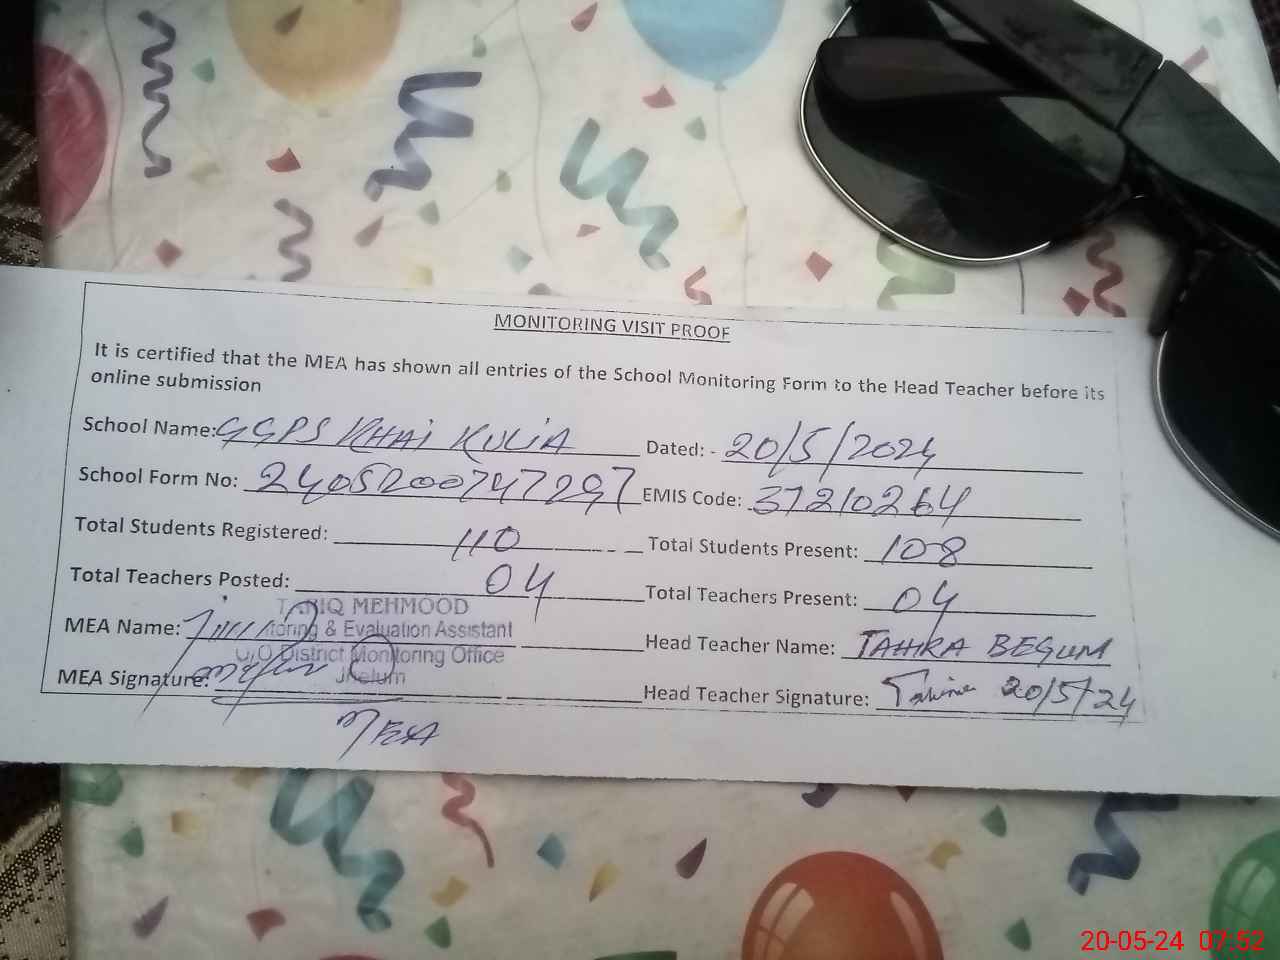 MONITORING VISIT PROOF
It is certified that the MEA has shown all entries of the School Monitoring Form to the Head Teacher before its
online submission
School Name: GGPS KHAI KULIA Dated: - 20/5/2024
School Form No: 2405200747297 EMIS Code: 37210264
Total Students Registered: 110 Total Students Present: 108
Total Teachers Posted: 04 Total Teachers Present: 04
TARIQ MEHMOOD
MEA Name: Monitoring & Evaluation Assistant Head Teacher Name: TAHIRA BEGUM
O/O District Monitoring Office
Jhelum
MEA Signature: Head Teacher Signature: 20/5/24
MEA
20-05-24 07:52